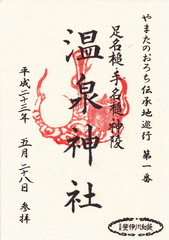 やまたのおろち伝承地巡行 第一番
足名槌・手名槌神陵
温泉神社
平成二十三年 五月 二八日 参拝